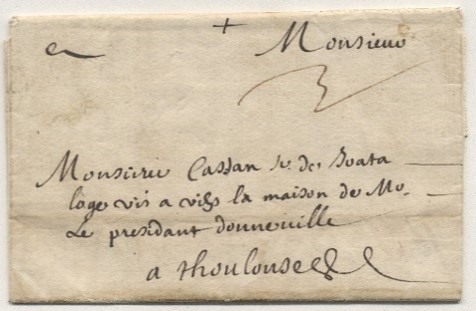 + Monsieur
3
Monsieur Cassan Sr. de Boata
loge vis a vis la maison de Mo.
Le presidant donneuille
a thoulouse